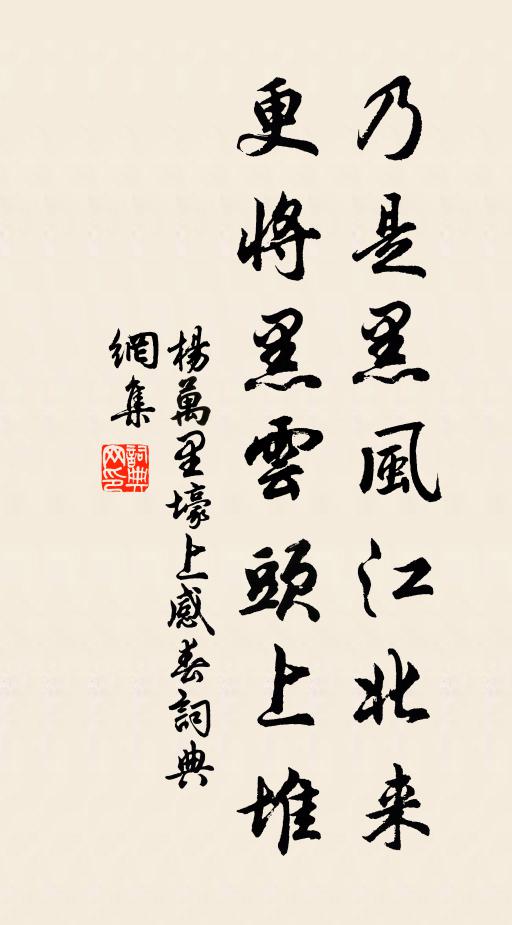 乃是黑風江北来
更將黑雲頭上堆
楊萬里壕上感春詞典
網集
詞典
网印